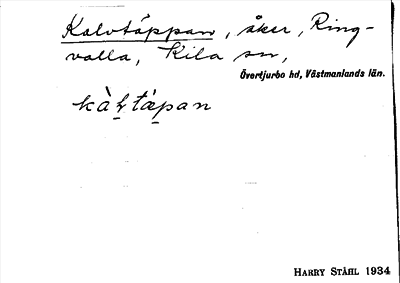 Kalvtäppan, åker, Ring-
valla, Kila sn,
Övertjurbo hd, Västmanlands län.
kàḷtäpan
HARRY STÅHL 1934